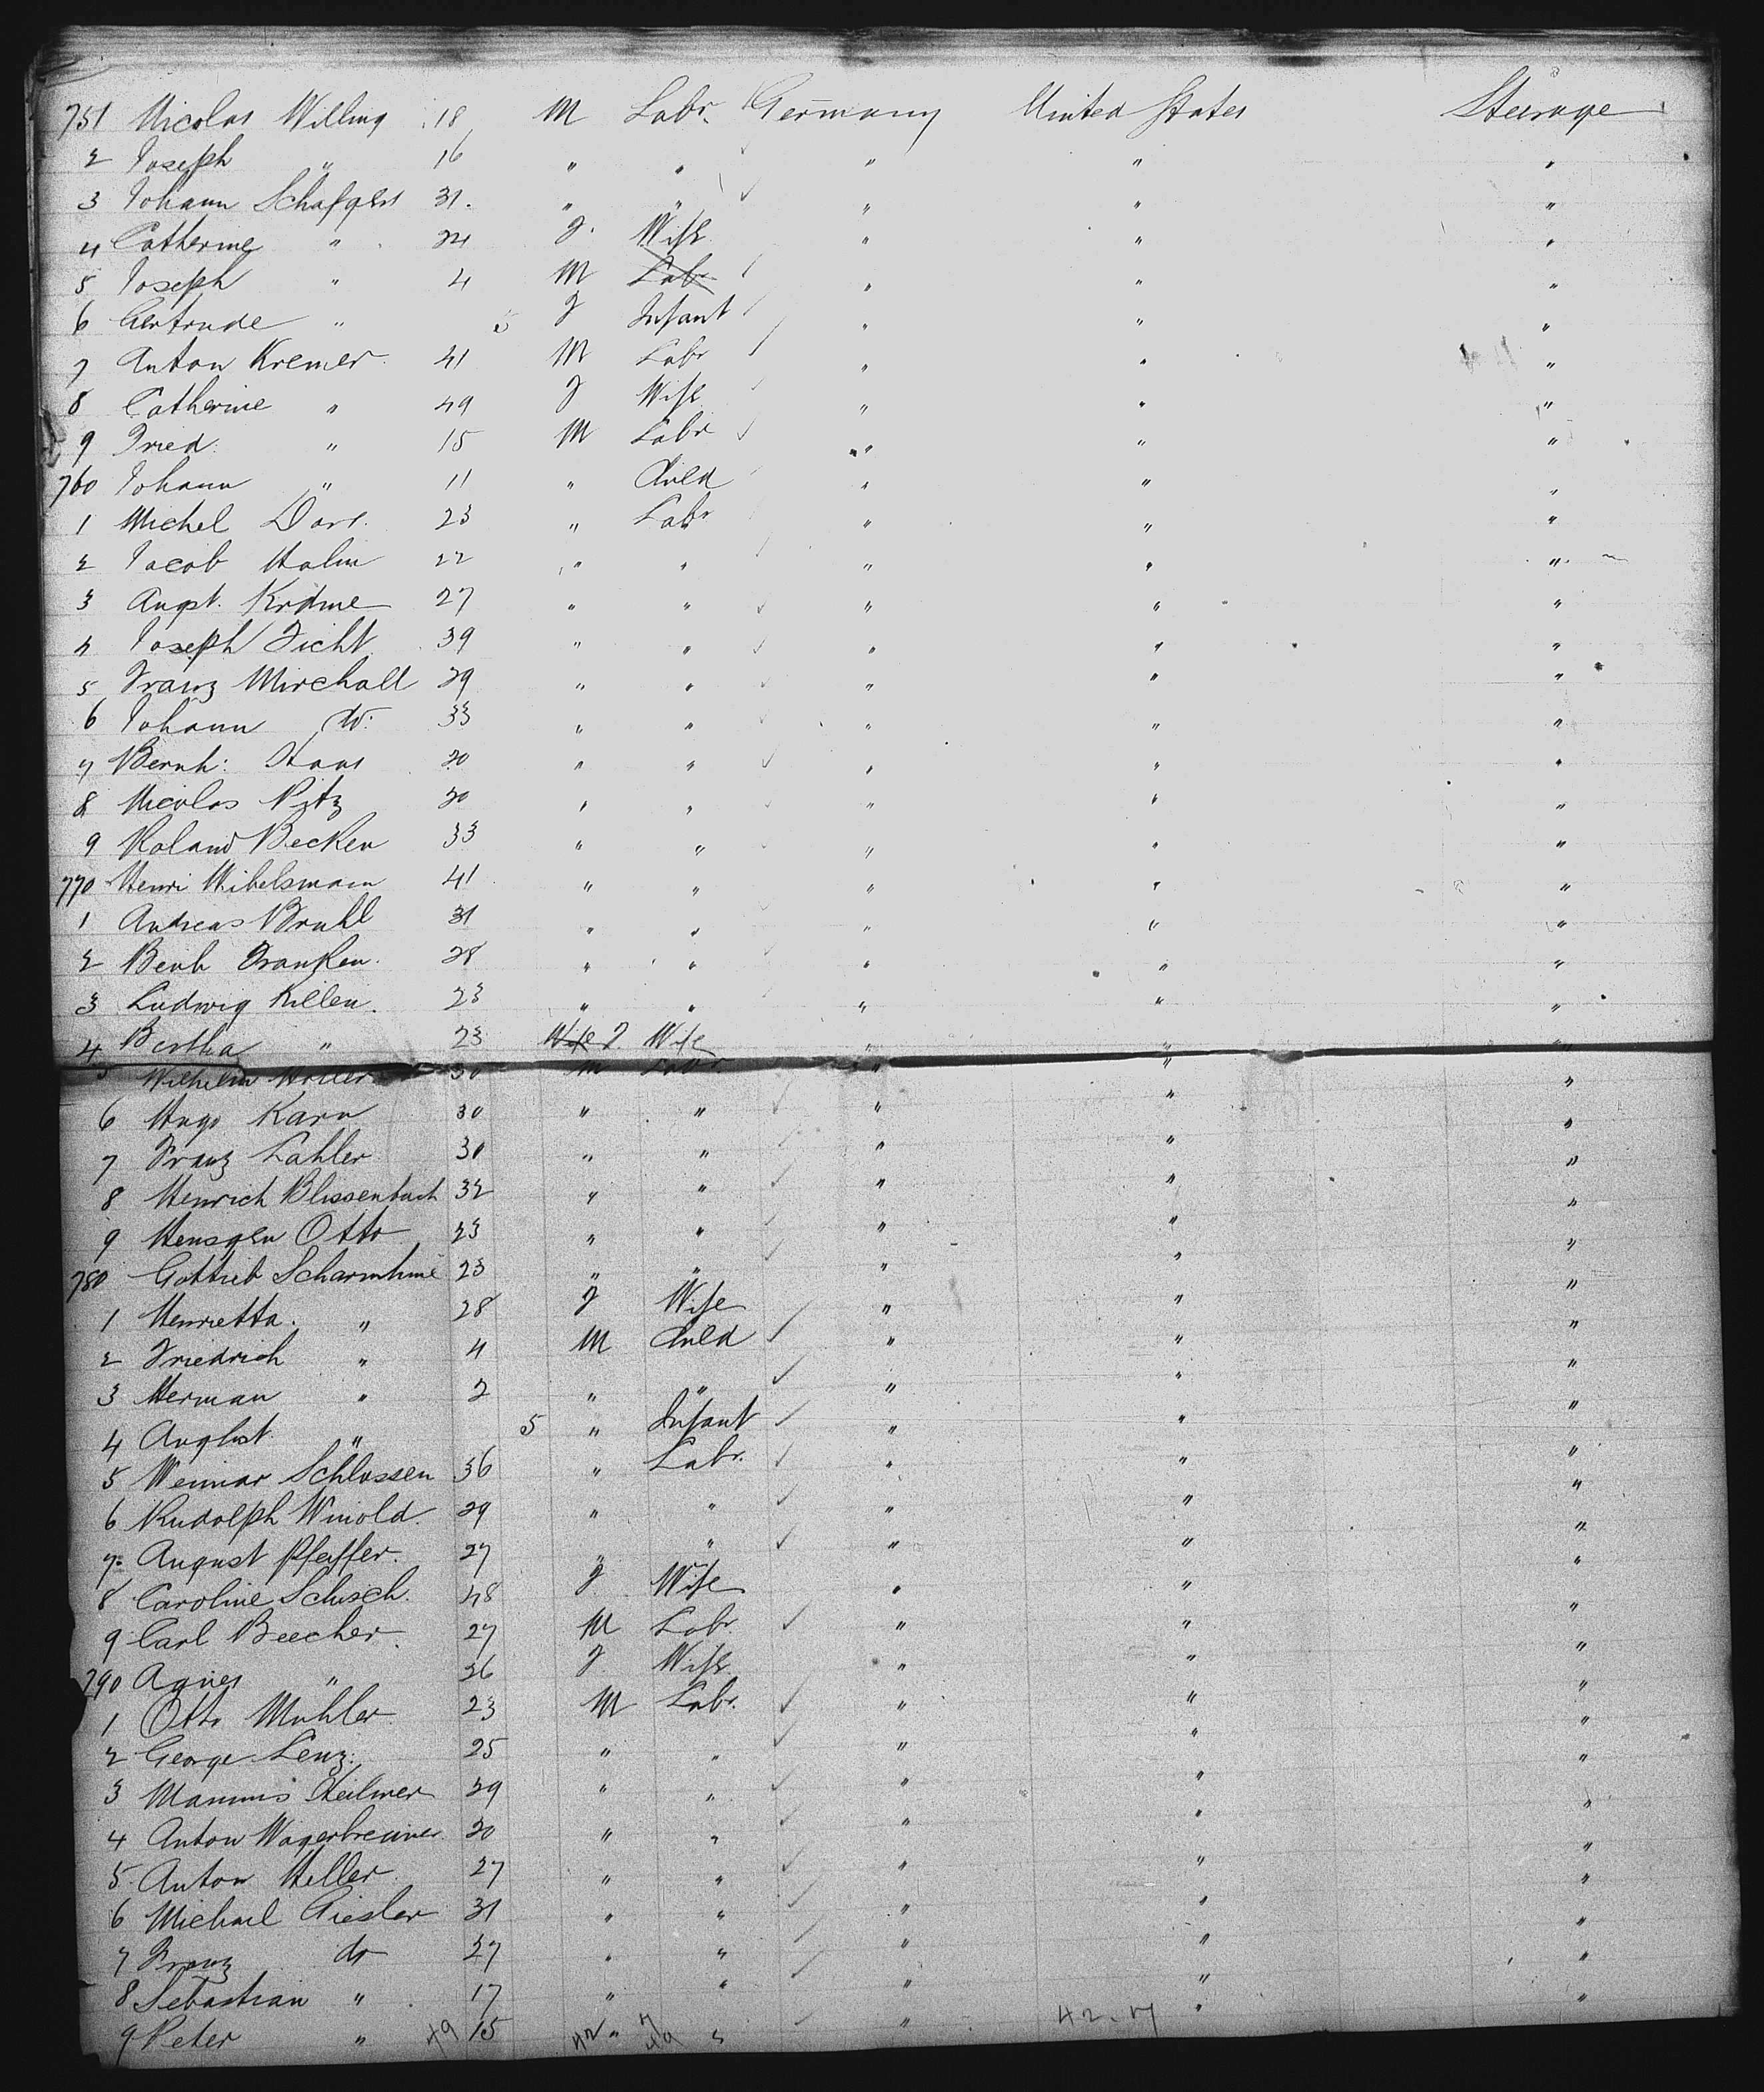 751 Nicolas Willing 18 M Labr. Germany United States Steerage
2 Joseph " 16 " " " " "
3 Johann Schafgen 31. " " " " "
4 Catherine " 24 F. Wife " " "
5 Joseph " 4 M Labr. " " "
6 Gertrude " 5 F Infant " " "
7 Anton Kremer 41 M Labr " " "
8 Catherine " 49 F Wife " " "
9 Fried: " 15 M Labr " " "
760 Johann " 11 " Child " " "
1 Michel 23 " Labr " " "
2 Jacob Halm 22 " " " " "
3 Augst. 27 " " " " "
4 Joseph Ficht 39 " " " " "
5 Franz Mirchall 29 " " " " "
6 Johann do: 33 " " " " "
7 Bernh: Haas 20 " " " " "
8 Nicolas Pitz 20 " " " " "
9 Roland Becken 33 " " " " "
770 Henri Wibelsmann 41 " " " " "
1 Andreas Bruhl 31 " " " " "
2 Benh Franken. 28 " " " " "
3 Ludwig Killen. 23 " " " " "
4 Bertha " 23 Wife F. Wife " " "
5 Wilhelm Holler 30 M Labr " " "
6 Hugo Karn 30 " " " " "
7 Franz Lahler 30 " " " " "
8 Henrich Blissenbach 32 " " " " "
9 Hensgen Otto 23 " " " " "
780 Gottlieb 23 " " " " "
1 Henrietta. " 28 F Wife " " "
2 Friedrich " 4 M Child " " "
3 Herman " 2 " " " " "
4 August " 5 " Infant " " "
5 Weimar Schlossen 36 " Labr. " " "
6 Rudolph Winold. 29 " " " " "
7 August Pfeiffer. 27 " " " " "
8 Caroline Schisch. 48 F Wife " " "
9 Carl Beecher. 27 M Labr. " " "
790 Agnes " 26 F. Wife. " " "
1 Otto Muhler. 23 M Labr. " " "
2 George Lenz. 25 " " " " "
3 Heilmer 29 " " " " "
4 Anton Wagerbrenner. 20 " " " " "
5 Anton Heller. 27 " " " " "
6 Michael Giesler 31 " " " " "
7 Franz do 27 " " " " "
8 Sebastian " 17 " " " " "
9 Peter " 49 15 42 " " " 42.17 " "